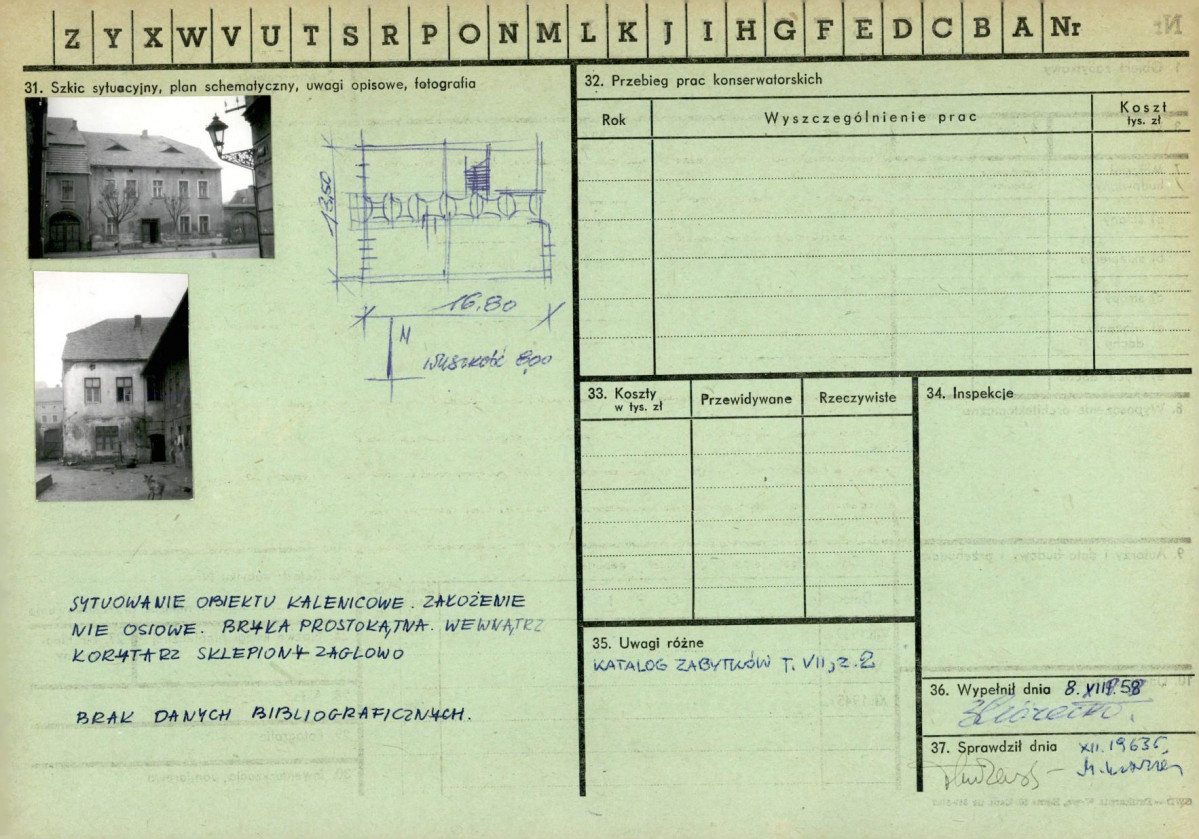 Z Y X W V U T S R P O N M L K J I H G F E D C B A Nr
31. Szkic sytuacyjny, plan schematyczny, uwagi opisowe, fotografia
13,50
16.80
N
wysokość 8,00
SYTUOWANIE OBIEKTU KALENICOWE. ZAŁOŻENIE
NIE OSIOWE. BRYŁA PROSTOKĄTNA. WEWNĄTRZ
KORYTARZ SKLEPIONY ŻAGLOWO
BRAK DANYCH BIBLIOGRAFICZNYCH.
32. Przebieg prac konserwatorskich
Rok
Wyszczególnienie prac
Koszt
tys. zł
33. Koszty
w tys. zł
Przewidywane
Rzeczywiste
34. Inspekcje
35. Uwagi różne
KATALOG ZABYTKÓW T. VII, z. 2
36. Wypełnił dnia
37. Sprawdził dnia XII. 1963 r.